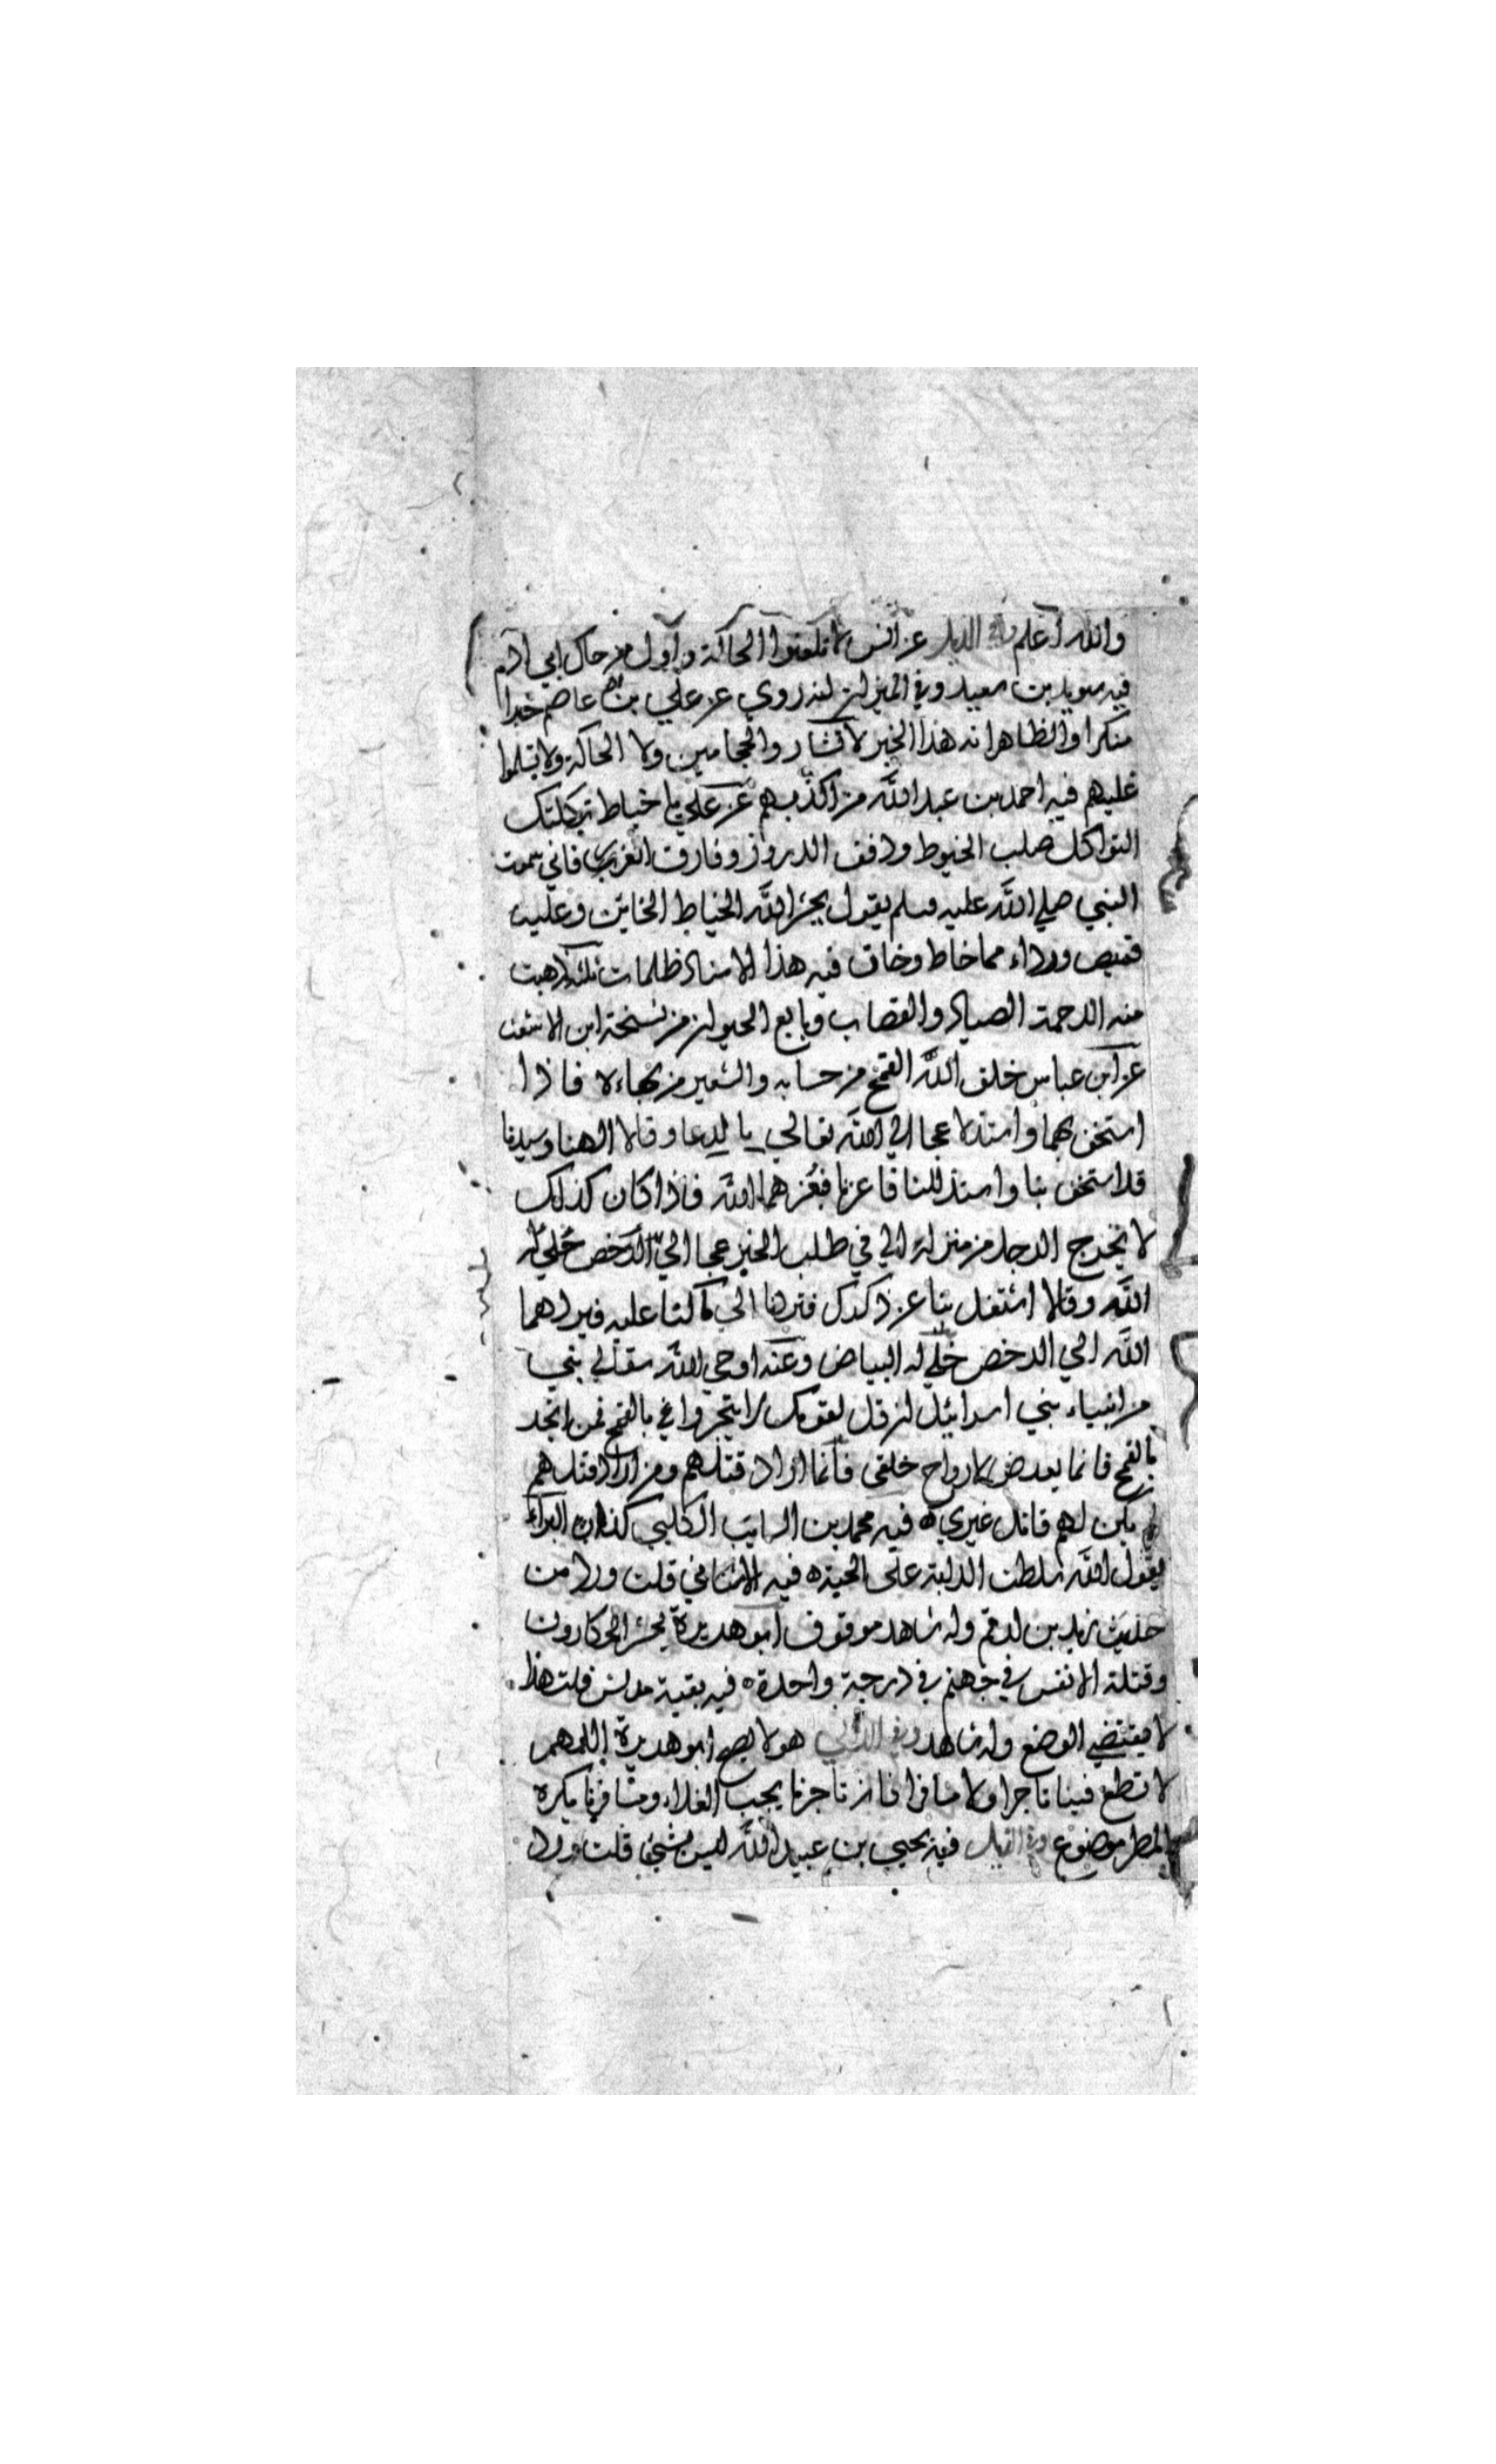 والله أعلم وفي الذيل عن انس لا تلعنوا الحاكة وأول من حاك ابي ادم
فيه سويد بن سعيد وفي الميزان انه روي عن علي بن عاصم خبرا
منكرا والظاهر انه هذا الخبر لا تشاور والحجامين ولا الحاكة ولا تسلموا
عليهم فيه احمد بن عبد الله من اكذبهم عن علي يا خياط ثكلتك
الثواكل صلب الخيوط ودقق الدروز وقارب الغرز فاني سمعت
النبي صلي الله عليه وسلم يقول يحشر الله الخياط الخائن وعليه
قميص ورداء مما خاط وخان فيه هذا الاسناد ظلمات ثلثة ذهبت
منه الرحمة الصياد والقصاب وبايع الحيوان من نسخة ابن الاشعث
عن ابن عباس خلق الله القمح من حسابه والشعير من بهاءه فاذا
استخف بهما واستذلا عجا الي الله تعالي بالدعا وقالا الهنا وسيدنا
قد استخف بنا واستذللنا فاعزنا فيعزهما الله فاذا كان كذلك
لا يخرج الرجل من منزله الي في طلب الخبز عجا الي الرخص خلي له
الله وقالا اشتغل بنا عن ذكرك فتردنا الي ما كنا عليه فيردهما
الله الي الرخص خلي له البياض وعنه اوحي الله تعالي الي نبي
من انبياء بني اسرائيل ان قل لقومك لا يتجروا في بالقمح فمن اتجر
بالقمح فانما يعرض لارواح خلقي فانما اراد قتلهم ومن اراد قتلهم
لم يكن لهم قاتل غيري ه فيه محمد بن السايب الكلبي كذاب البراء
يقول الله سلطت الدابة على الحبة ه فيه الاشناني قلت ورد من
حديث زيد بن ارقم وله شاهد موقوف ابو هريرة يحشر الحكارون
وقتلة الانفس في جهنم في درجة واحدة ه فيه بقية مدلس قلت هذا
لا يقتضي الوضع وله شاهد وفي اللالي هو لا يصح ابو هريرة اللهم
لا تطع فينا تاجرا ولا مسافرا فان تاجرنا يحب الغلاء ومسافرنا يكره
المطر موضوع وفي الذيل فيه يحيي بن عبيد الله ليس بشيء قلت ورد